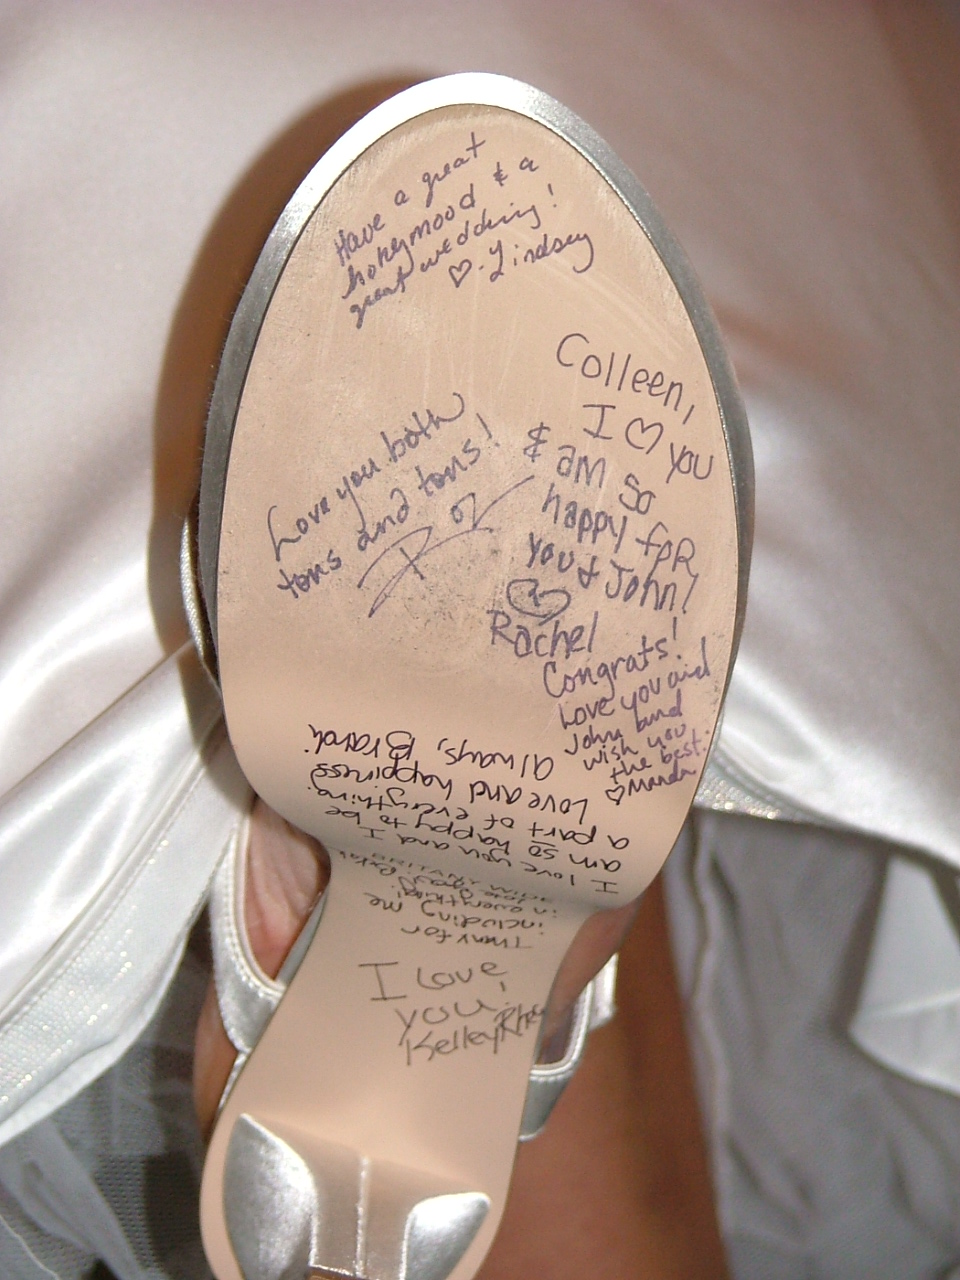 Have a great
honeymood & a
great wedding!
♡-Lindsey
Colleen,
I ♡ you
& am so
happy for
you & John!
Rachel
Love you both
tons and tons!
Congrats!
Love you and
John and
wish you
the best.
♡ Manda
I love you and I
am so happy to be
a part of everything.
Love and happiness
always, Brandi
Thank for
including me
in everything!
I Love,
you.
Kelley